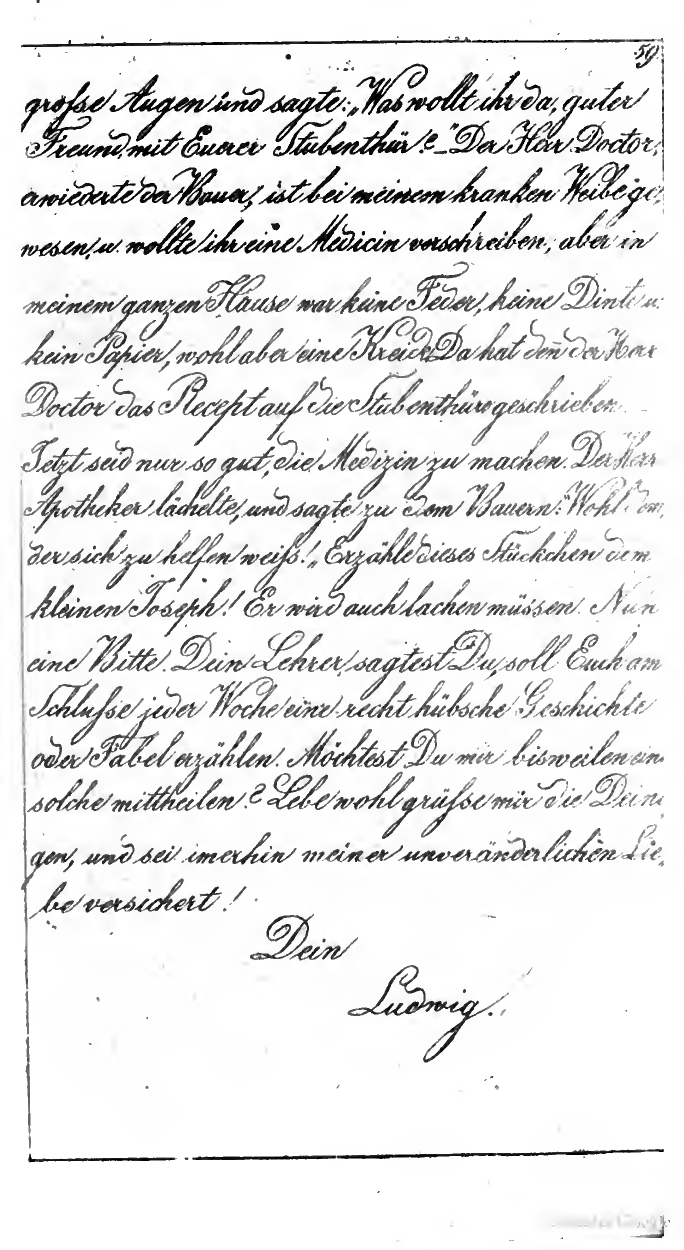 59.
grosse Augen und sagte: „Was wollt ihr da, guter
Freund, mit Euerer Stubenthür?"_ Der Herr Doctor,
erwiederte der Bauer, ist bei meinem kranken Weibe ge,
wesen, u. wollte ihr eine Medicin verschreiben, aber in
meinem ganzen Hause war keine Feder, keine Dinte u.
kein Papier, wohl aber eine Kreide. Da hat den̄ der Herr
Doctor das Recept auf die Stubenthüre geschrieben.
Jetzt seid nur so gut, die Medizin zu machen. Der Herr
Apotheker lächelte, und sagte zu dem Bauern: "Wohl dem,
der sich zu helfen weiß!„ Erzähle dieses Stückchen dem
kleinen Joseph! Er wird auch lachen müssen. Nun
eine Bitte. Dein Lehrer, sagtest Du, soll Euch am
Schlusse jeder Woche eine recht hübsche Geschichte
oder Fabel erzählen. Möchtest Du mir bisweilen ein
solche mittheilen? Lebe wohl grüsse mir die Deini
gen, und sei imerhin meiner unveränderlichen Lie,
be versichert!
Dein
Ludwig.